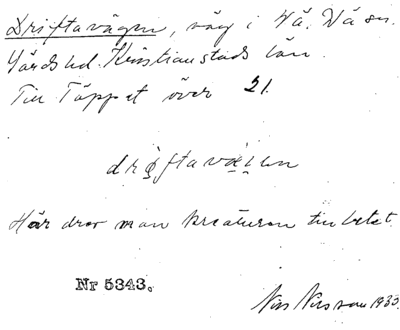 Driftavägen, väg i Vä. Vä sn.
Gärds hd. Kristianstads län.
Till Täppet över 21.
driftaväjen
Här drev man kreaturen till betet.
Nr 5343.
Nils Nilsson 1933.